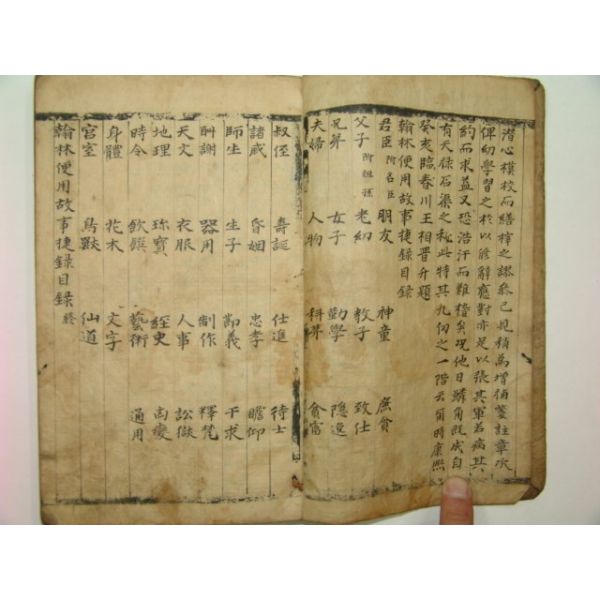 潛心模校而繕梓之謬爲已見積爲增補並註章承
俾幼學習之於以修辭應對亦足以張其軍若病其
約而求益又恐浩汗而難稽矣况他日頭角旣成自
有天祿石渠之秘此特其九仞之一階云爾時康熙
癸亥臨春川王相晋升題
翰林便用故事捷錄目錄
君臣 附名臣 朋友 神童 廉貪
父子 附祖孫 老幼 教子 致仕
兄弟 女子 勤學 隱逸
夫婦 人物 科第 貧富
叔侄 壽誕 仕進 待士
諸戚 昏姻 忠孝 瞻仰
師生 生子 節義 干求
酬謝 器用 制作 釋梵
天文 衣服 人事 訟獄
地理 珍寶 經史 凶變
時令 飲饌 藝術 通用
身體 花木 文字
宮室 鳥獸 仙道
翰林便用故事捷錄目錄 終